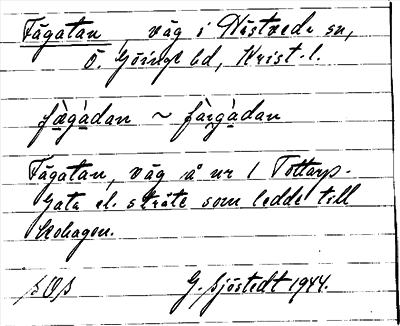 Fägatan, väg i Nästveda sn,
Ö. Göinge hd, Krist. l.
fæ̀gàdan ~ fàrgàdan
Fägatan, väg å nr 1 Tottarps-
gata el. sträte som ledde till
kohagen.
G. Sjöstedt 1944.